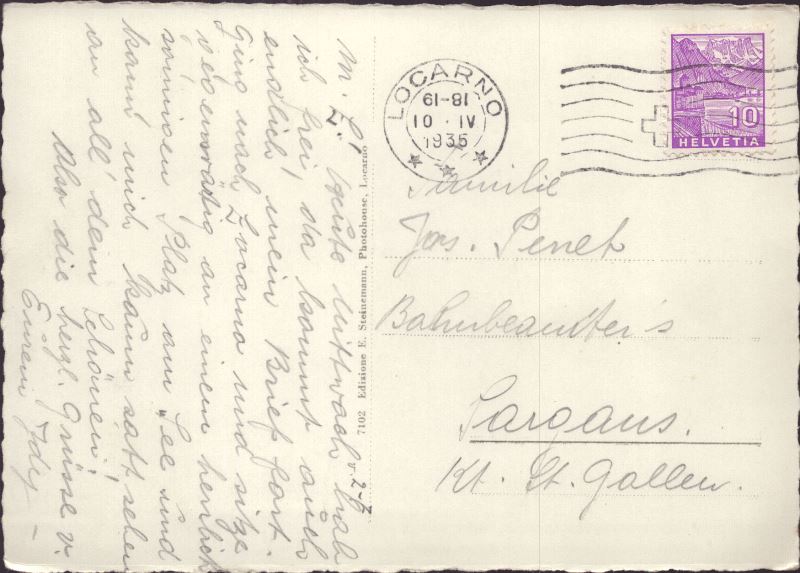 LOCARNO
18-19
10·IV
1935
10
HELVETIA
Familie
Jos. Penet
Bahnbeamter's
Sargans.
Kt. St. Gallen.
7102 Edizione E. Steinemann, Photohouse, Locarno
M. L.! Heute Mittwoch hab
ich frei, da kommt auch
endlich mein Brief fort.
Ging nach Locarno und sitze
an einem herrlich
sonnigen Platz am See und
kann mich kaum satt sehen
an all' dem Schönen!
Also die herzl. Grüsse v.
Eurem